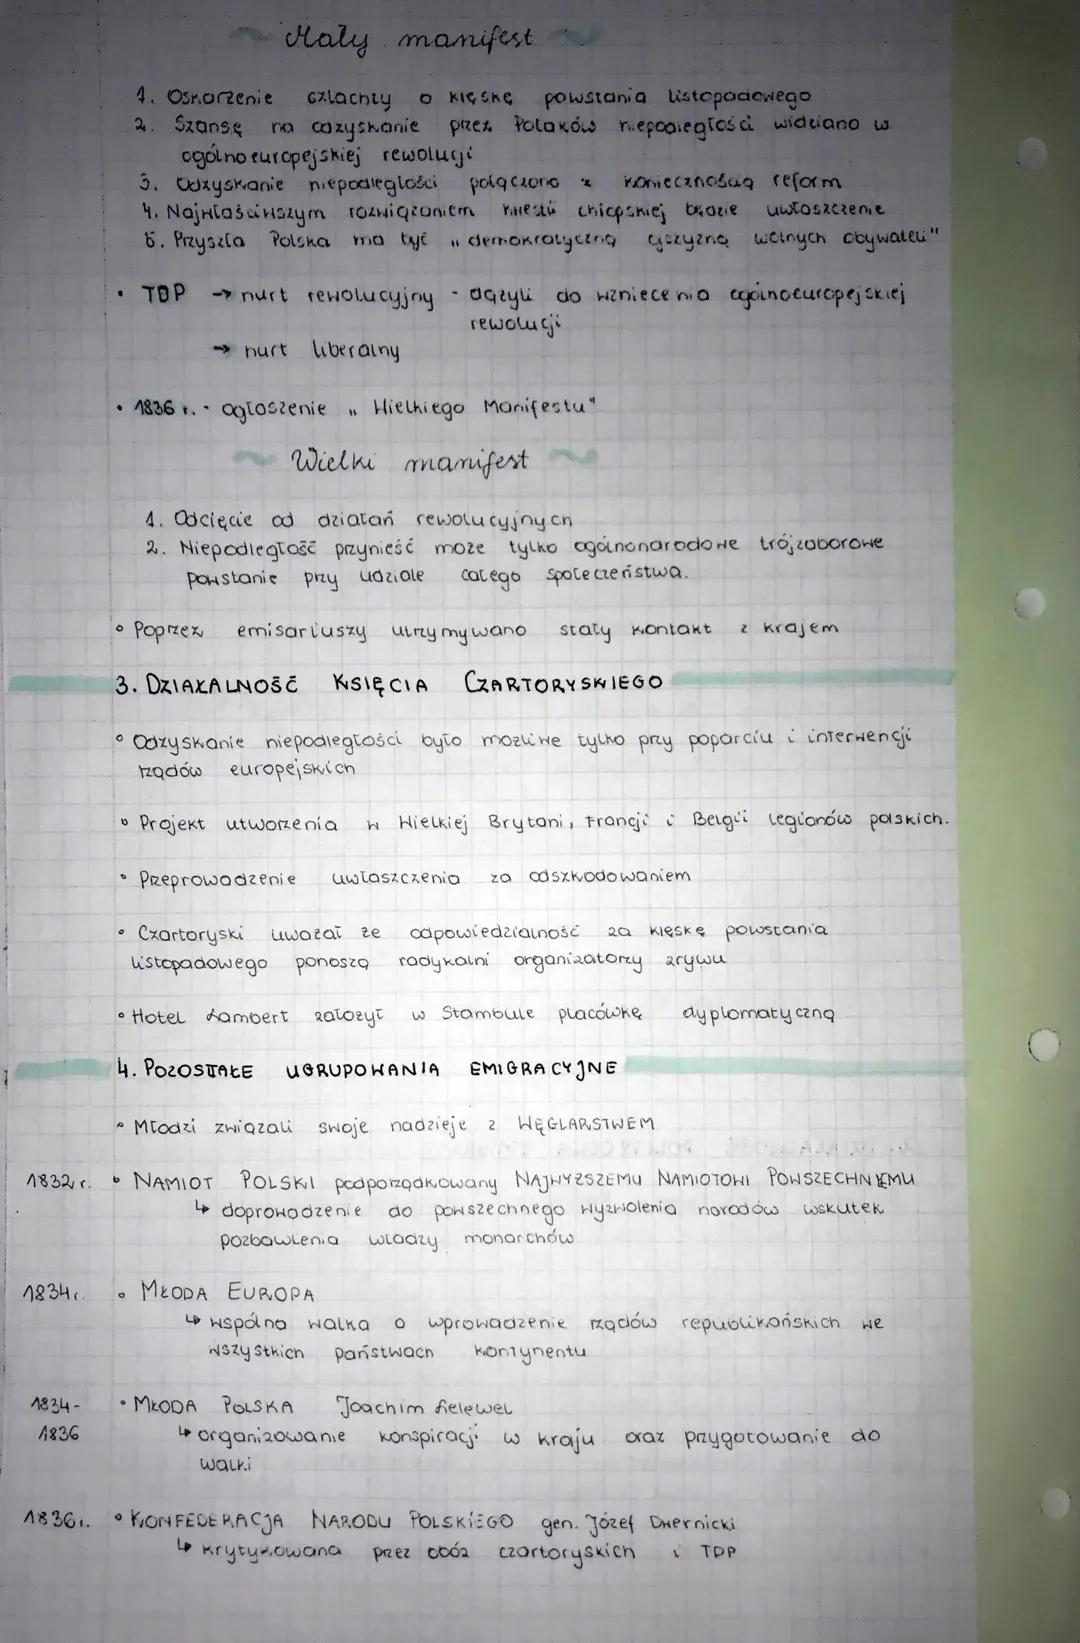 Mały manifest
1. Oskarżenie szlachty o klęskę powstania listopadowego
2. Szansę na odzyskanie przez Polaków niepodległości widziano w
ogólnoeuropejskiej rewolucji
3. Odzyskanie niepodległości połączono z koniecznością reform
4. Najwłaściwszym rozwiązaniem kwestii chłopskiej będzie uwłaszczenie
5. Przyszła Polska ma być „demokratyczną ojczyzną wolnych obywateli"
• TDP → nurt rewolucyjny - dążyli do wzniecenia ogólnoeuropejskiej
rewolucji
→ nurt liberalny
• 1836 r. - ogłoszenie „Wielkiego Manifestu"
Wielki manifest
1. Odcięcie od działań rewolucyjnych
2. Niepodległość przynieść może tylko ogólnonarodowe trójzaborowe
powstanie przy udziale całego społeczeństwa.
• Poprzez emisariuszy utrzymywano stały kontakt z krajem
3. DZIAŁALNOŚĆ KSIĘCIA CZARTORYSKIEGO
• Odzyskanie niepodległości było możliwe tylko przy poparciu i interwencji
rządów europejskich
• Projekt utworzenia w Wielkiej Brytani, Francji i Belgii legionów polskich.
• Przeprowadzenie uwłaszczenia za odszkodowaniem
• Czartoryski uważał że odpowiedzialność za klęskę powstania
listopadowego ponoszą radykalni organizatorzy zrywu
• Hotel Lambert założył w Stambule placówkę dyplomatyczną
4. POZOSTAŁE UGRUPOWANIA EMIGRACYJNE
• Młodzi związali swoje nadzieje z WĘGLARSTWEM
1832 r. • NAMIOT POLSKI podporządkowany NAJWYŻSZEMU NAMIOTOWI POWSZECHNEMU
↳ doprowadzenie do powszechnego wyzwolenia narodów wskutek
pozbawienia władzy monarchów
1834 r. • MŁODA EUROPA
↳ wspólna walka o wprowadzenie rządów republikańskich we
wszystkich państwach kontynentu
1834- • MŁODA POLSKA Joachim Lelewel
1836 ↳ organizowanie konspiracji w kraju oraz przygotowanie do
walki
1836 r. • KONFEDERACJA NARODU POLSKIEGO gen. Józef Dwernicki
↳ krytykowana przez obóz czartoryskich i TDP